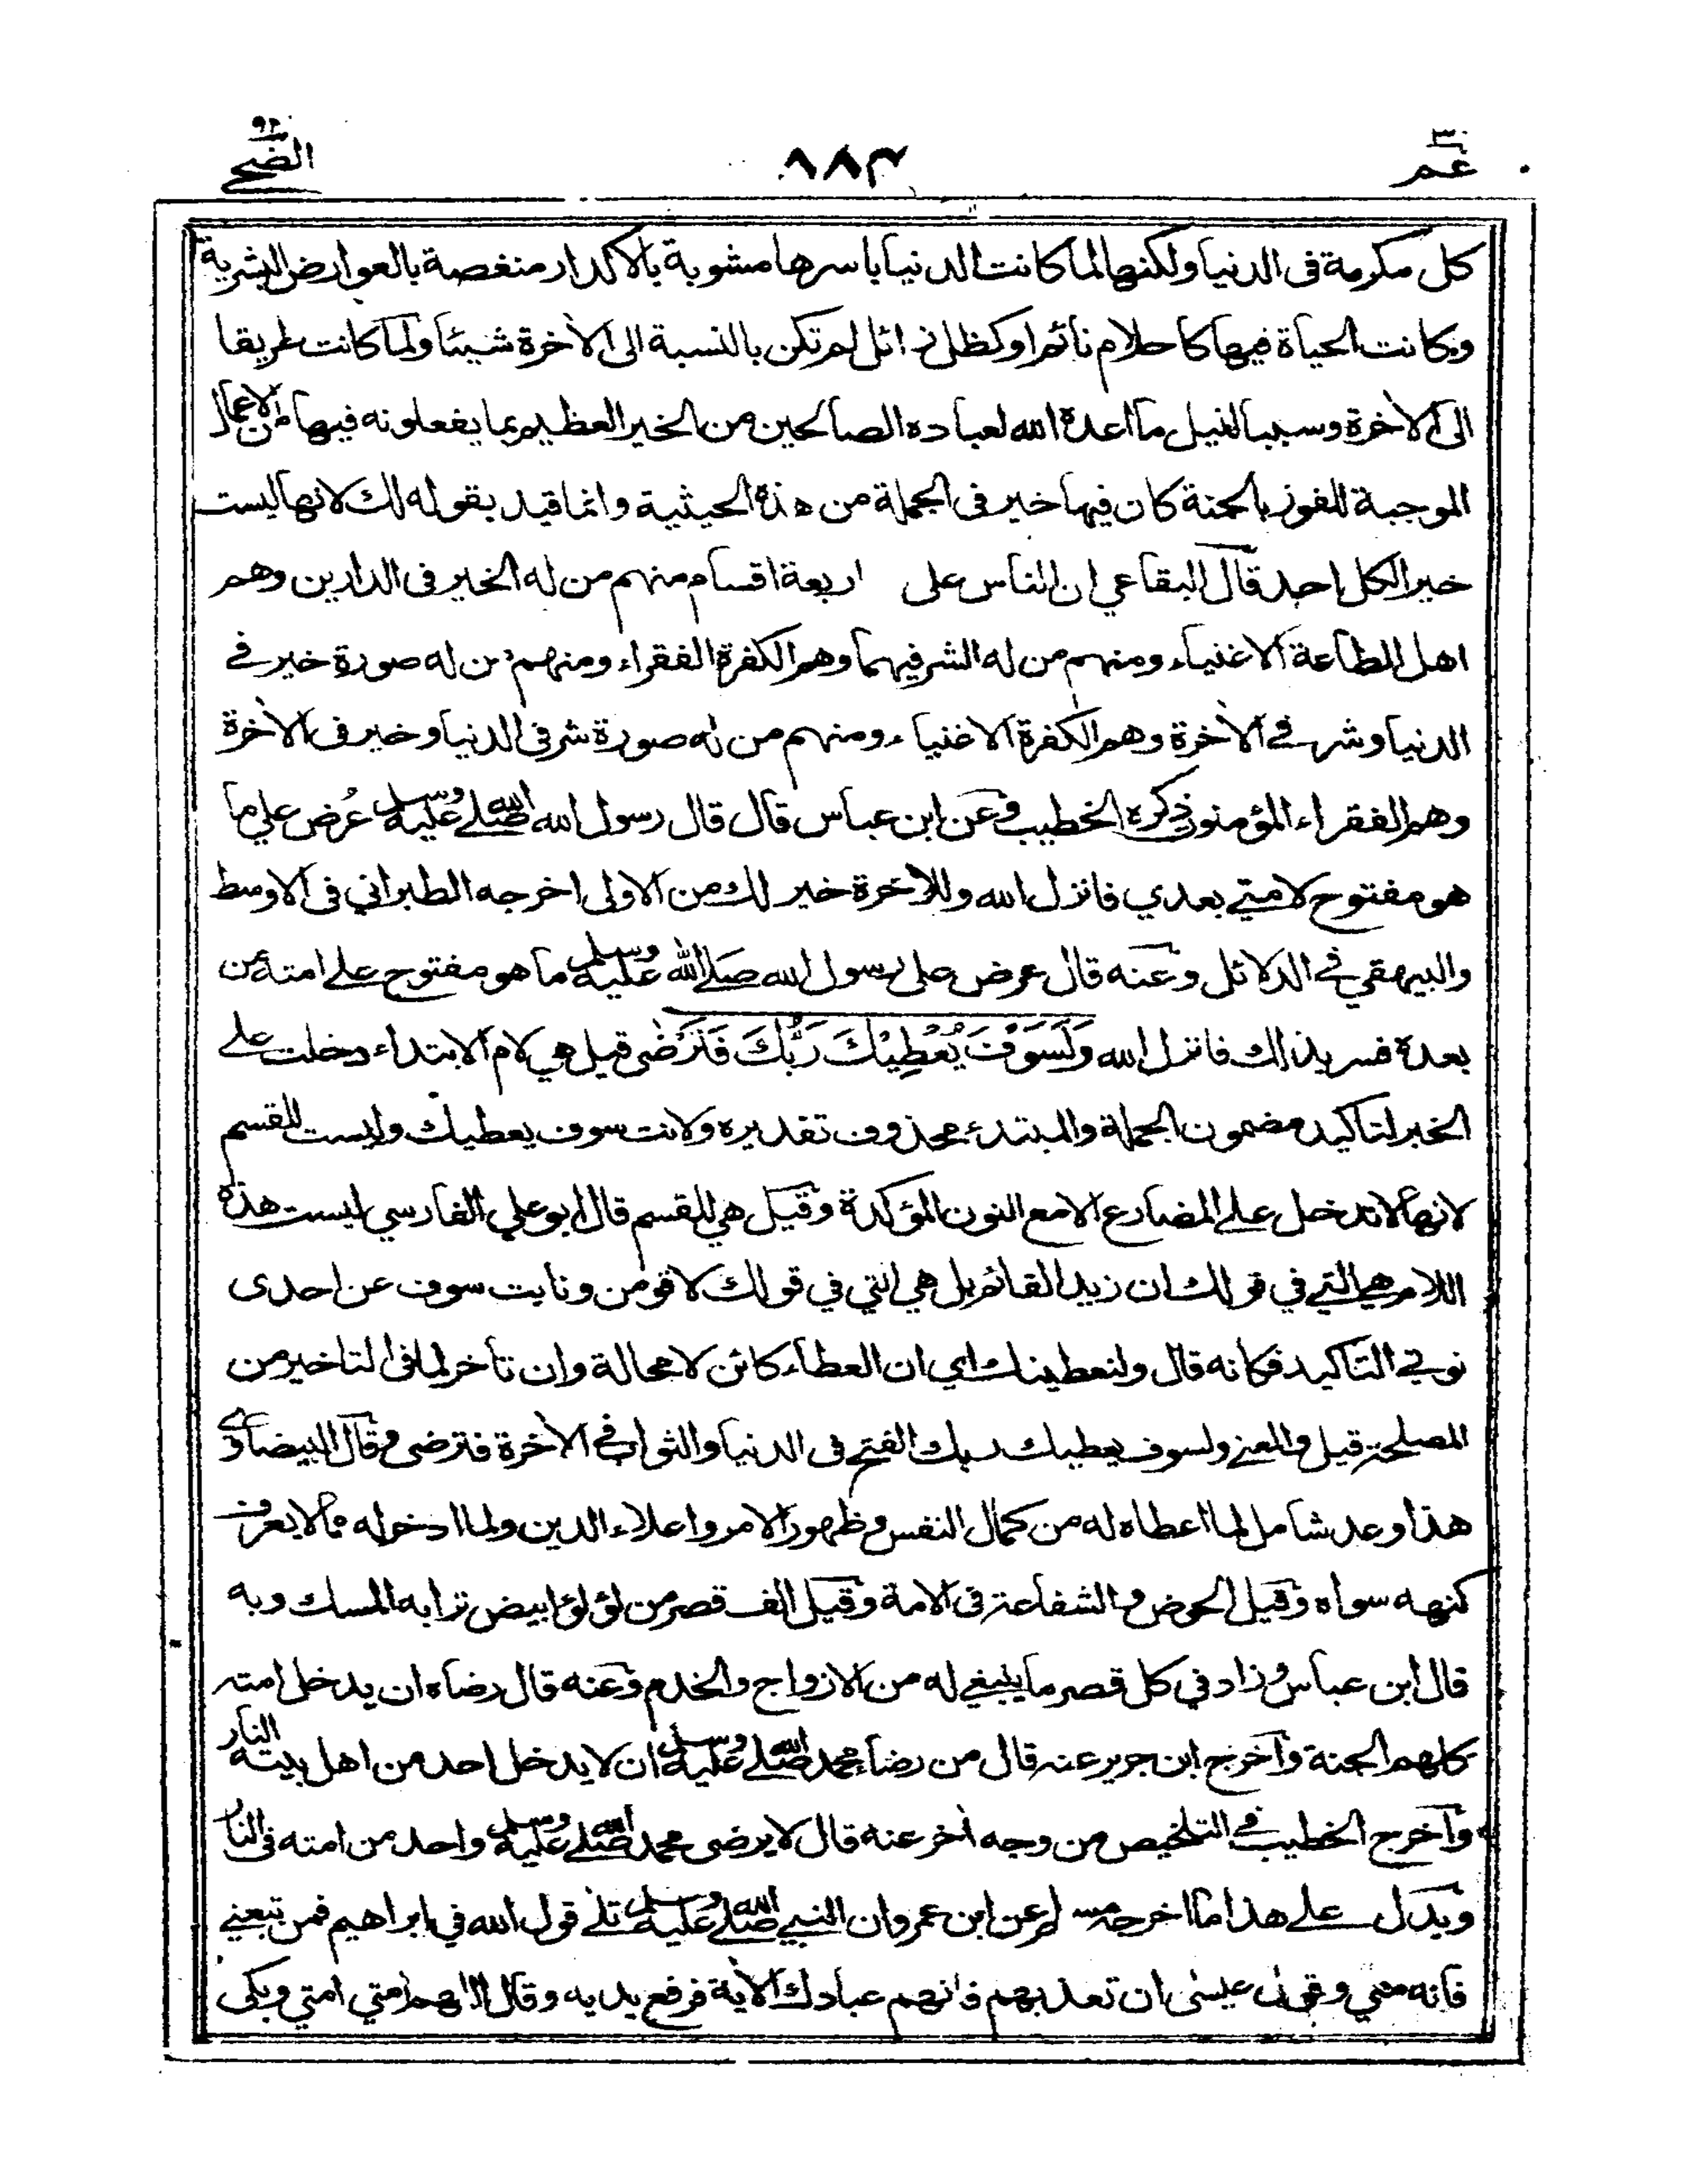 عم ٣٠
٨٨٣
الضحى ٩٣
كل مكرمة فى الدنيا ولكنها لما كانت الدنيا باسرها مشوبة بالاكدار منغصة بالعوارض البشرية
وكانت الحياة فيها كاحلام نائم او كظل زائل لم تكن بالنسبة الى الآخرة شيئا ولما كانت طريقا
الى الآخرة وسببا لنيل ما اعده الله لعباده الصالحين من الخير العظيم بما يفعلونه فيها من الاعمال
الموجبة للفوز بالجنة كان فيها خير فى الجملة من هذه الحيثية وانما قيد بقوله لك لانها ليست
خيرا لكل احد قال البقاعي ان الناس على اربعة اقسام منهم من له الخير فى الدارين وهم
اهل الطاعة الاغنياء ومنهم من له الشر فيهما وهم الكفرة الفقراء ومنهم من له صورة خير في
الدنيا وشر في الآخرة وهم الكفرة الاغنياء ومنهم من له صورة شر فى الدنيا وخير فى الآخرة
وهم الفقراء المؤمنون ذكره الخطيب وعن ابن عباس قال قال رسول الله صلى الله عليه وسلم عُرض علي ما
هو مفتوح لامتي بعدي فانزل الله وللآخرة خير لك من الاولى اخرجه الطبراني فى الاوسط
والبيهقي في الدلائل وعنه قال عرض على رسول الله صلى الله عليه وسلم ما هو مفتوح على امته من
بعده فسر بذلك فانزل الله وَلَسَوْفَ يُعْطِيْكَ رَبُّكَ فَتَرْضٰى قيل هي لام الابتداء دخلت على
الخبر لتاكيد مضمون الجملة والمبتدء محذوف تقديره ولانت سوف يعطيك وليست للقسم
لانها لا تدخل على المضارع الا مع النون المؤكدة وقيل هي للقسم قال ابو علي الفارسي ليست هذه
اللام هي التي في قولك ان زيدا لقائم بل هي التي في قولك لاقومن ونابت سوف عن احدى
نوني التاكيد فكانه قال ولنعطينك اي ان العطاء كائن لا محالة وان تأخر لما فى التاخير من
المصلحة قيل والمعنى ولسوف يعطيك ربك الفتح فى الدنيا والثواب في الآخرة فترضى وقال البيضاوي
هذا وعد شامل لما اعطاه له من كمال النفس وظهور الامر واعلاء الدين ولما ادخر له مما لا يعرف
كنهه سواه وقيل الحوض والشفاعة فى الامة وقيل الف قصر من لؤلؤ ابيض ترابه المسك وبه
قال ابن عباس وزاد في كل قصر ما ينبغي له من الازواج والخدم وعنه قال رضاه ان يدخل امته
كلهم الجنة وأخرج ابن جرير عنه قال من رضا محمد صلى الله عليه وسلم ان لا يدخل احد من اهل بيته النار
وأخرج الخطيب في التلخيص من وجه أخر عنه قال لا يرضى محمد صلى الله عليه وسلم واحد من امته فى النار
ويدل على هذا ما اخرجه مسلم عن ابن عمرو ان النبي صلى الله عليه وسلم تلى قول الله في ابراهيم فمن تبعني
فانه مني وقول عيسى ان تعذبهم فانهم عبادك الآية فرفع يديه وقال اللهم امتي امتي وبكى